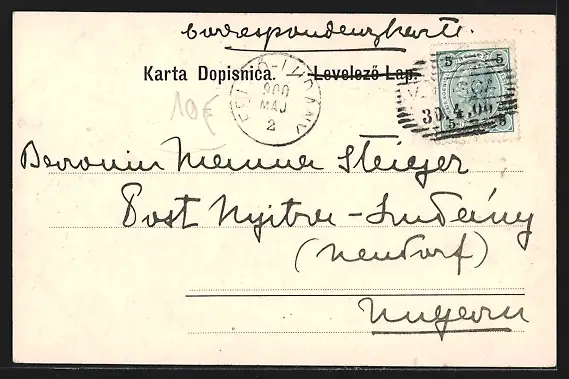 Correspondenzkarte.
Karta Dopisnica. Levelező-Lap.
5 5
900
MAJ
2
30.4.00
5 5
10€
Baronin Steiger
Post Nyitra-
(Neudorf)
Ungarn